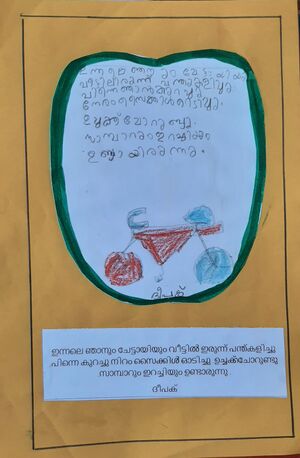 ഇന്നലെ ഞാനും ചേട്ടായിയും
വീട്ടിലിരുന്ന് പന്തുകളിച്ചു
പിന്നെ ഞാൻ കുറച്ചു
നേരം സൈക്കിൾ ഓടിച്ചു.
ഉച്ചക്ക് ചോറുണ്ടു
സാമ്പാറും ഇറച്ചിക്കും
ഉണ്ടായിരുന്നു.
ദീപക്
ഇന്നലെ ഞാനും ചേട്ടായിയും വീട്ടിൽ ഇരുന്ന് പന്ത്കളിച്ചു
പിന്നെ കുറച്ചു നിറം സൈക്കിൾ ഓടിച്ചു. ഉച്ചക്ക്ചോറുണ്ടു
സാമ്പാറും ഇറച്ചിയും ഉണ്ടാരുന്നു.
ദീപക്